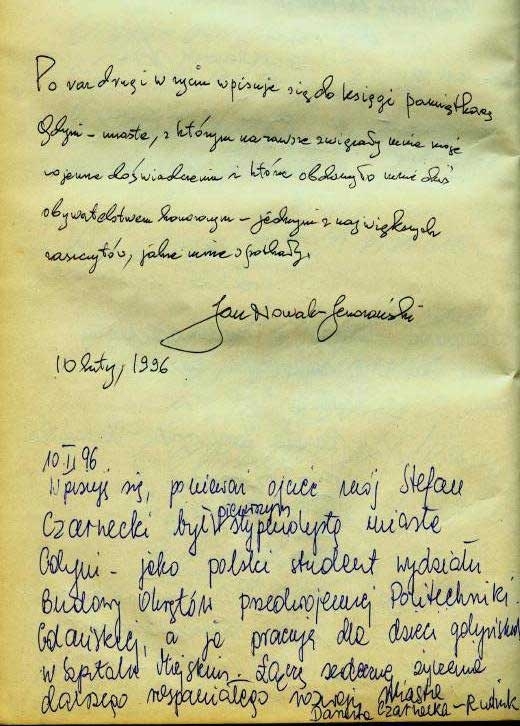 Po raz drugi w życiu wpisuję się do księgi pamiątkowej
Gdyni - miasta, z którym na zawsze związały mnie moje
wojenne doświadczenia i które obdarzyło mnie dziś
obywatelstwem honorowym - jednym z największych
zaszczytów, jakie mnie spotkały.
Jan Nowak-Jeziorański
10 luty, 1996
10 II 96
Wpisuję się, ponieważ ojciec mój Stefan
Czarnecki był pierwszym stypendystą miasta
Gdyni - jako polski student wydziału
Budowy Okrętów przedwojennej Politechniki
Gdańskiej, a ja pracuję dla dzieci gdyńskich
w Szpitalu Miejskim. Łączę serdeczne życzenia
dalszego wspaniałego rozwoju Miasta
Danuta Czarnecka-Rudnik